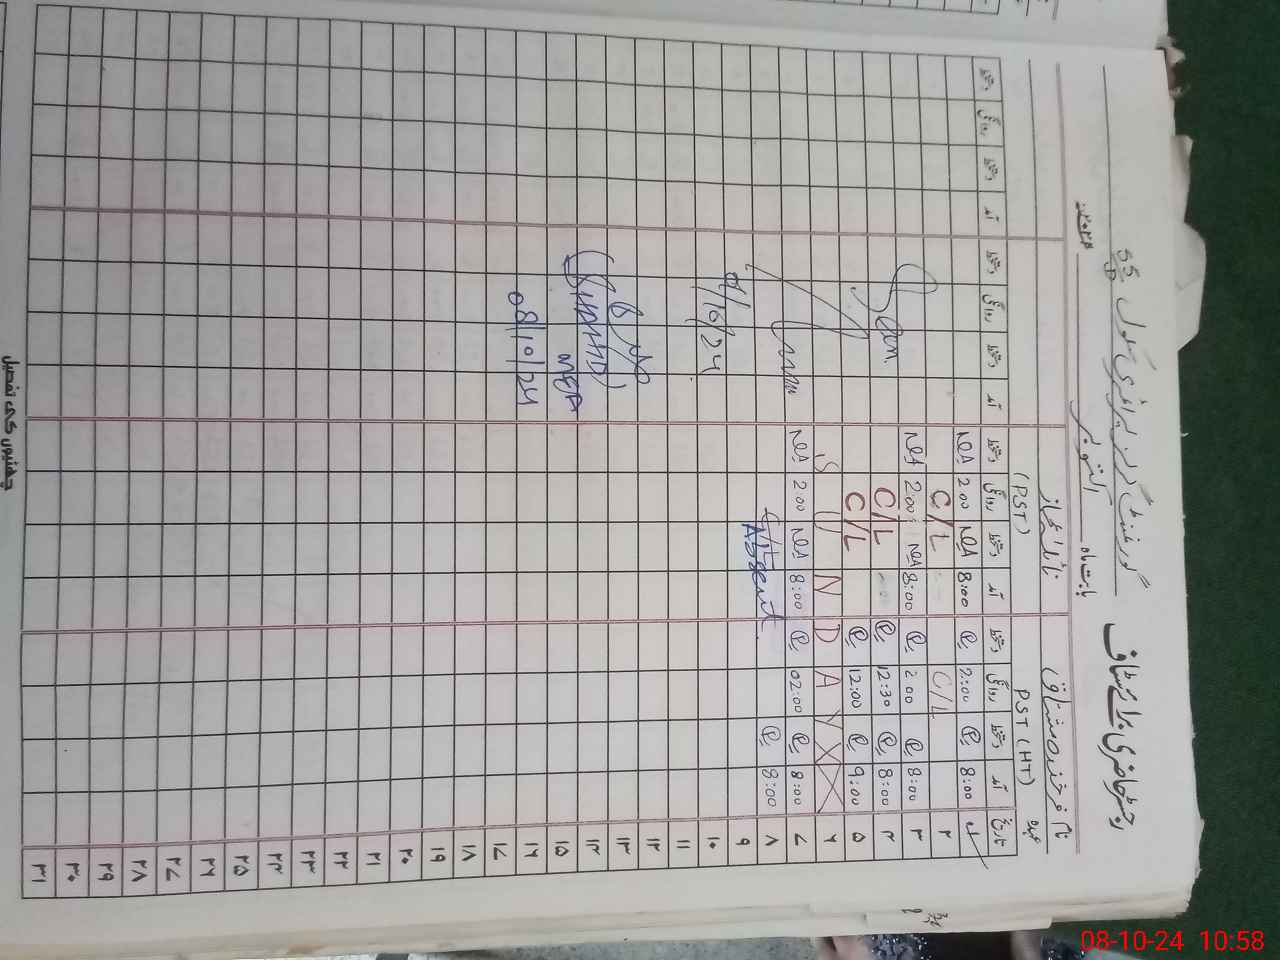 رجسٹر حاضری برائے سٹاف گورنمنٹ گرلز پرائمری سکول
بابت ماہ اکتوبر ۲۰۲۴ء
نام فرخندہ مشتاق
عہدہ PST (HT)
نائلہ ناز
(PST)
تاریخ آمد دستخط روانگی دستخط آمد دستخط روانگی دستخط آمد دستخط روانگی دستخط آمد دستخط روانگی دستخط
۱ 8:00 2:00 8:00 NQA 2:00 NQA
۲ C/L C/L
۳ 8:00 2:00 8:00 NQA 2:00 NQA
۴ 8:00 12:30 C/L
۵ 9:00 12:00 C/L
۶ S U N D A Y
۷ 8:00 02:00 8:00 NQA 2:00 NQA
۸ 8:00 Absent
۹
۱۰
۱۱
۱۲
۱۳
۱۴
۱۵
۱۶
۱۷
۱۸
۱۹
۲۰
۲۱
۲۲
۲۳
۲۴
۲۵
۲۶
۲۷
۲۸
۲۹
۳۰
۳۱
(SHAHID)
MEA
08/10/24
چھٹیوں کی تفصیل
08-10-24 10:58